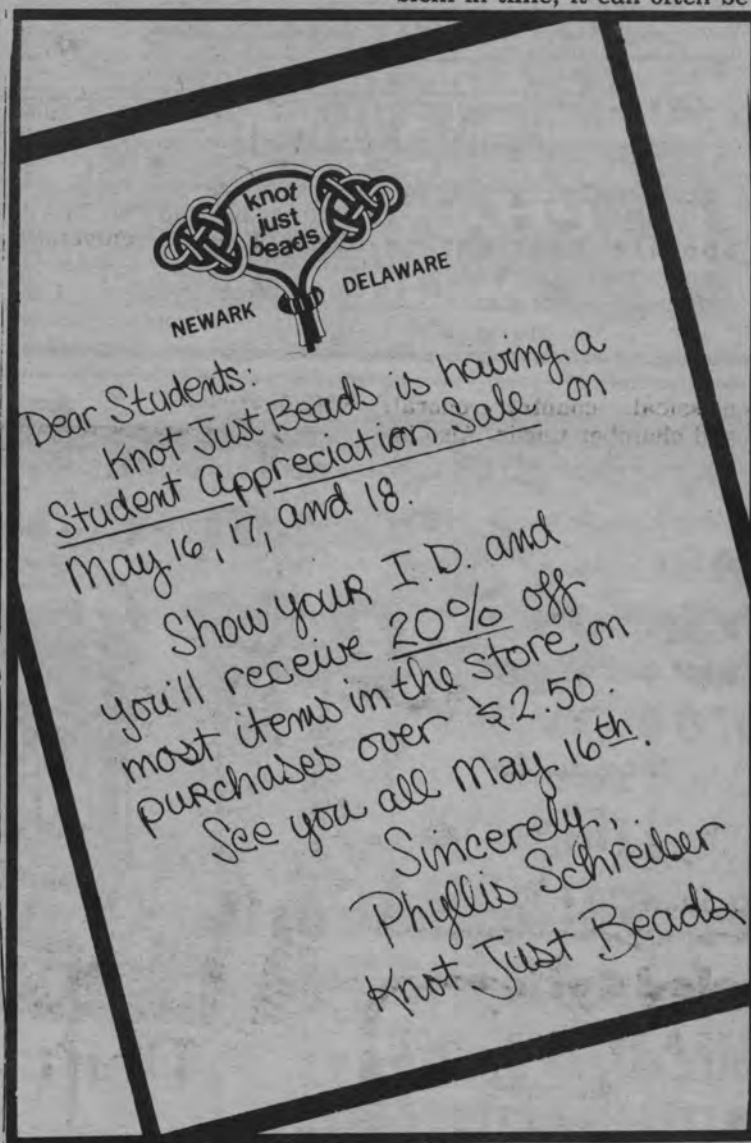 knot
just
beads
NEWARK DELAWARE
Dear Students:
Knot Just Beads is having a
Student Appreciation Sale on
May 16, 17, and 18.
Show your I.D. and
you'll receive 20% off
most items in the store on
purchases over $2.50.
See you all May 16th.
Sincerely,
Phyllis Schreiber
Knot Just Beads